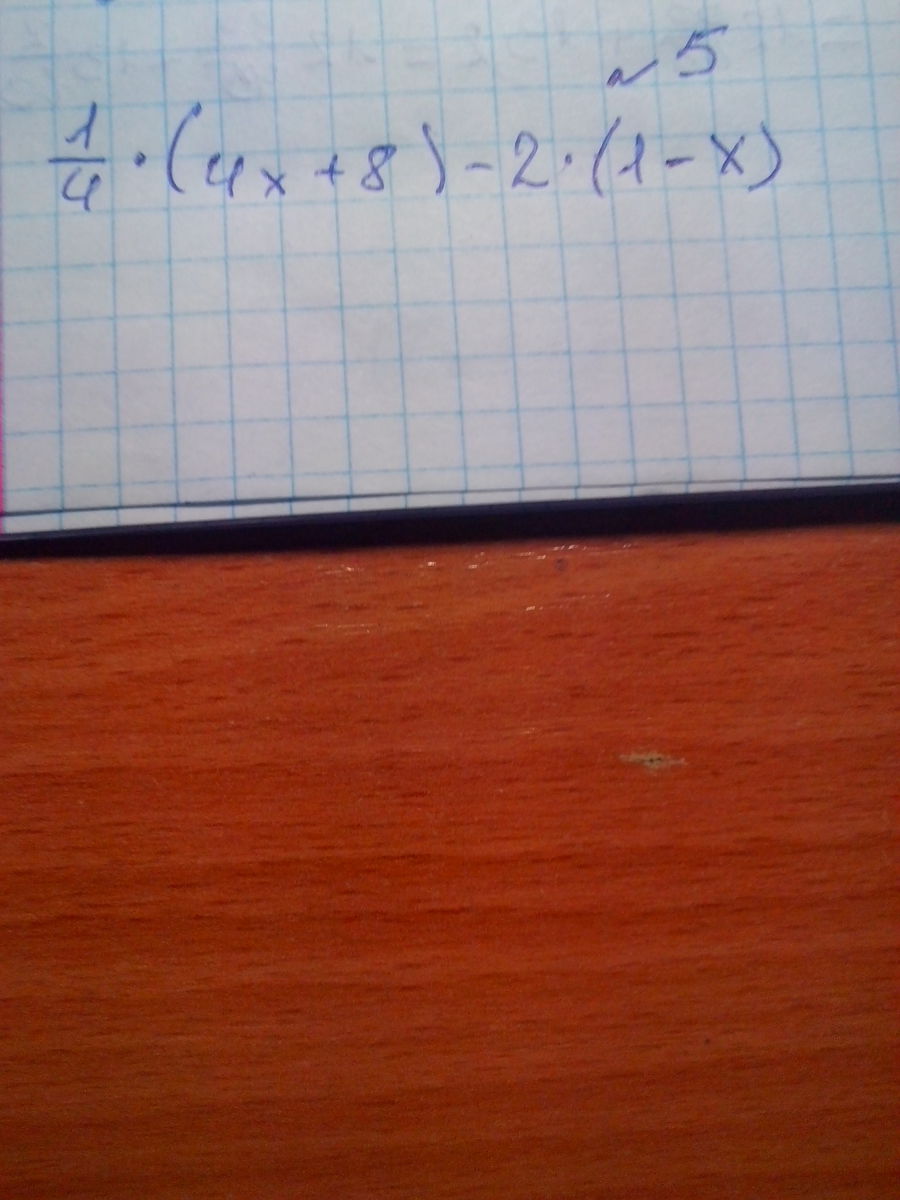 №5
1/4 · (4x + 8) - 2 · (1 - x)